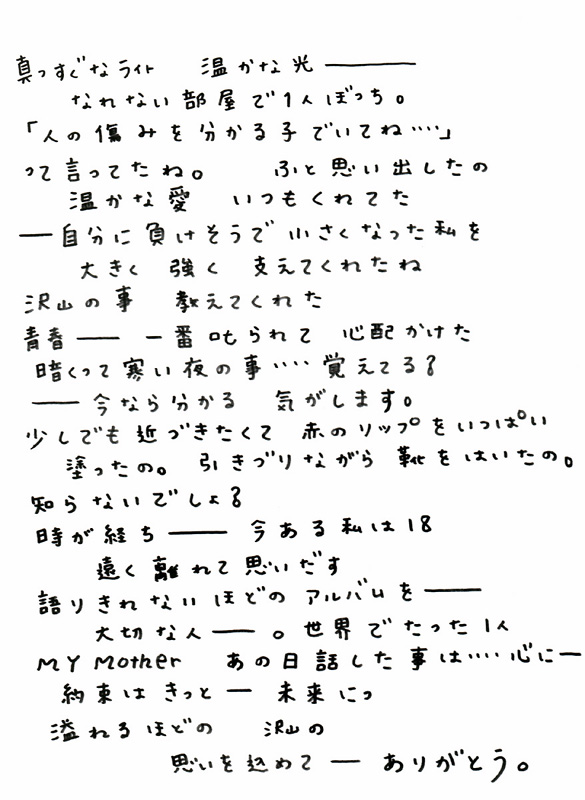 真っすぐなライト 温かな光 ―――
なれない部屋で1人ぼっち。
「人の傷みを分かる子でいてね‥‥」
って言ってたね。 ふと思い出したの
温かな愛 いつもくれてた
― 自分に負けそうで 小さくなった私を
大きく 強く 支えてくれたね
沢山の事 教えてくれた
青春 ― 一番叱られて 心配かけた
暗くって寒い夜の事‥‥覚えてる?
― 今なら分かる 気がします。
少しでも近づきたくて 赤のリップをいっぱい
塗ったの。 引きづりながら 靴をはいたの。
知らないでしょ?
時が経ち ― 今ある私は18
遠く離れて思いだす
語りきれないほどの アルバムを ―
大切な人 ― 。世界でたった1人
MY Mother あの日話した事は‥‥心に ―
約束は きっと ― 未来にっ
溢れるほどの 沢山の
思いを込めて ― ありがとう。